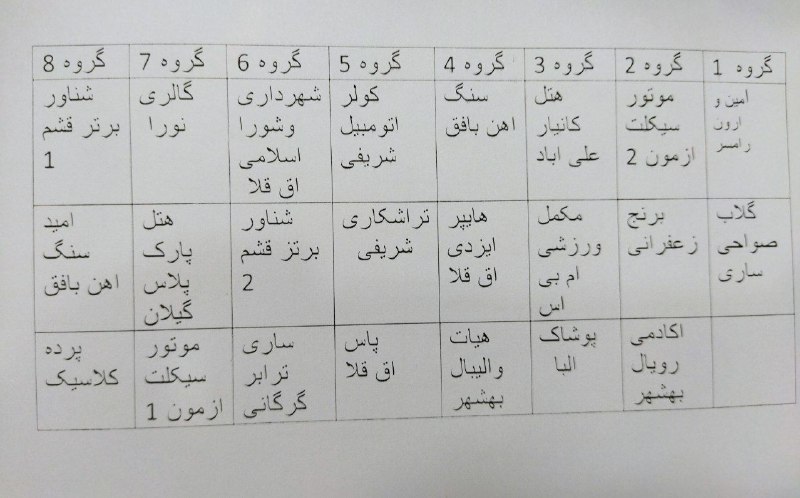 گروه 1 گروه 2 گروه 3 گروه 4 گروه 5 گروه 6 گروه 7 گروه 8
امین و
ارون
رامسر
موتور
سیکلت
ازمون 2
هتل
کانیار
علی اباد
سنگ
اهن بافق
کولر
اتومبیل
شریفی
شهرداری
وشورا
اسلامی
اق قلا
گالری
نورا
شناور
برتر قشم
1
گلاب
صواحی
ساری
برنج
زعفرانی
مکمل
ورزشی
ام بی
اس
هایپر
ایزدی
اق قلا
تراشکاری
شریفی
شناور
برتز قشم
2
هتل
پارک
پلاس
گیلان
امید
سنگ
اهن بافق
اکادمی
رویال
بهشهر
پوشاک
البا
هیات
والیبال
بهشهر
پاس
اق قلا
ساری
ترابر
گرگانی
موتور
سیکلت
ازمون 1
پرده
کلاسیک